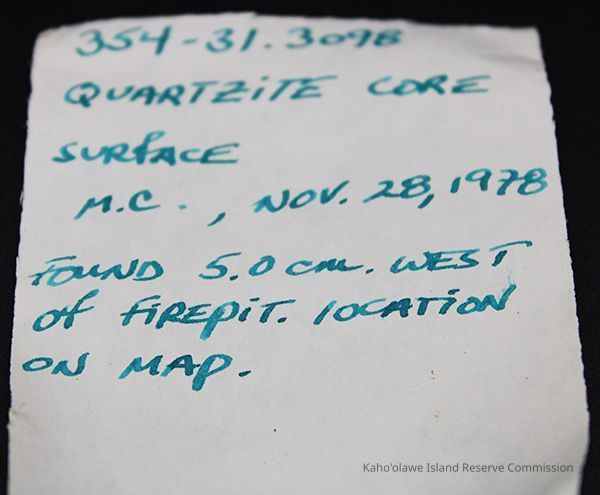 354-31.3098
QUARTZITE CORE
SURFACE
M.C., NOV. 28, 1978
FOUND 5.0 cm. WEST
of FIREPIT. LOCATION
ON MAP.
Kaho'olawe Island Reserve Commission